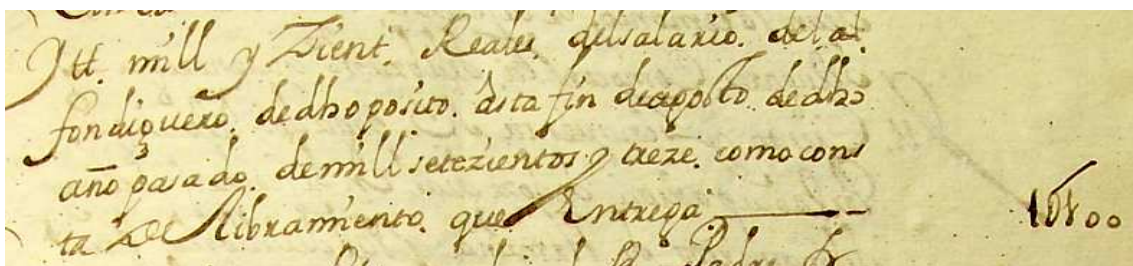 Ytt. mill y Zient. Reales. del salario. del al
fondiguero. de dho posito. asta fin de agosto. de dho
año pasado. de mill setezientos y treze. como cons
ta de libramiento. que Entrega
1U100